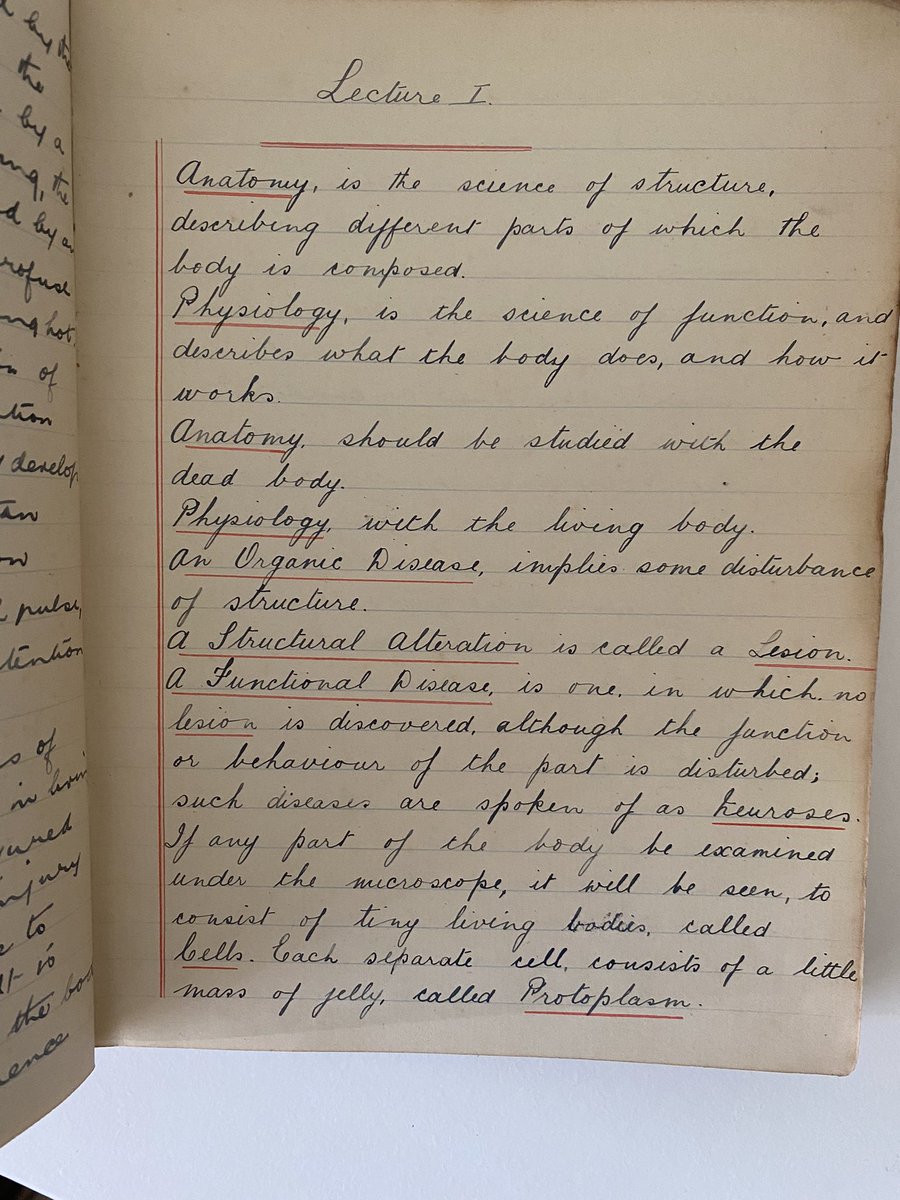 by the
the
by a
the
d by an
profuse
hot
of
develop
pulse,
s of
in
injury
to
It is
the
Lecture I.
Anatomy, is the science of structure,
describing different parts of which the
body is composed.
Physiology, is the science of function, and
describes what the body does, and how it
works.
Anatomy, should be studied with the
dead body.
Physiology, with the living body.
An Organic Disease, implies some disturbance
of structure.
A Structural Alteration is called a Lesion.
A Functional Disease, is one, in which no
lesion is discovered, although the function
or behaviour of the part is disturbed;
such diseases are spoken of as Neuroses.
If any part of the body be examined
under the microscope, it will be seen, to
consist of tiny living bodies, called
Cells. Each separate cell, consists of a little
mass of jelly, called Protoplasm.